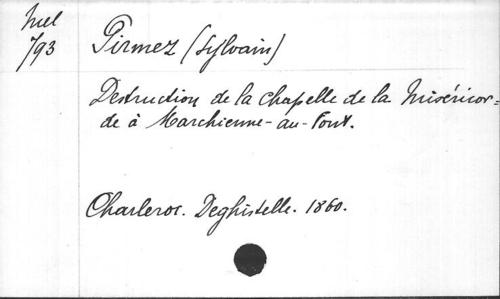 Mel
793
Pirmez (Sylvain)
Destruction de la chapelle de la Miséricor=
de à Marchienne-au-Pont.
Charleroi. Deghistelle. 1860.